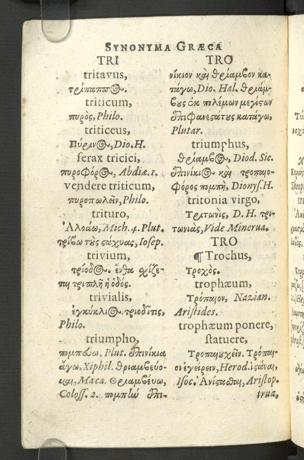 SYNONYMA GRÆCA
TRI
tritavus,
τρίπαππος.
triticum,
πυρὸς, Philo.
triticeus,
Πύρινος, Dio. H.
ferax tritici,
πυροφόρος, Abdiæ.1.
vendere triticum,
πυροπωλεῖν, Philo.
trituro,
Ἀλοάω, Mich. 4. Plut.
τρίβω τοὺς στάχυας, Iosep.
trivium,
τρίοδος. ἔνθα σχίζε-
ται τριπλῆ ἡ ὁδός.
trivialis,
ἐγκύκλιος, τριοδίτις,
Philo.
triumpho,
πομπεύω, Plut. ἐπινίκια
ἄγω, Xiphil. θριαμβεύο-
μαι, Maca. Θριαμβεύω,
Coloss. 2. πομπεύω ἐπι-
TRO
νίκιον καὶ θρίαμβον κα-
τάγω, Dio. Hal. θριάμ-
βους ἐκ πολέμων μεγίστων
ἐπιφανεστάτους κατάγω,
Plutar.
triumphus,
θρίαμβος, Diod. Sic.
ἐπινίκιος καὶ τροπαιο-
φόρος πομπὴ, Dionys. H.
tritonia virgo,
Τριτωνὶς, D. H. τρι-
τωνιὰς, Vide Minerva.
TRO
¶ Trochus,
τροχός.
trophæum,
Τρόπαιον, Nazian.
Aristides.
trophæum ponere,
statuere,
Τροπαιουχεῖν. Τρόπαι-
ον ἐγείρειν, Herod. ἱστάναι,
Isoc. Ἀνίσταται, Aristop.